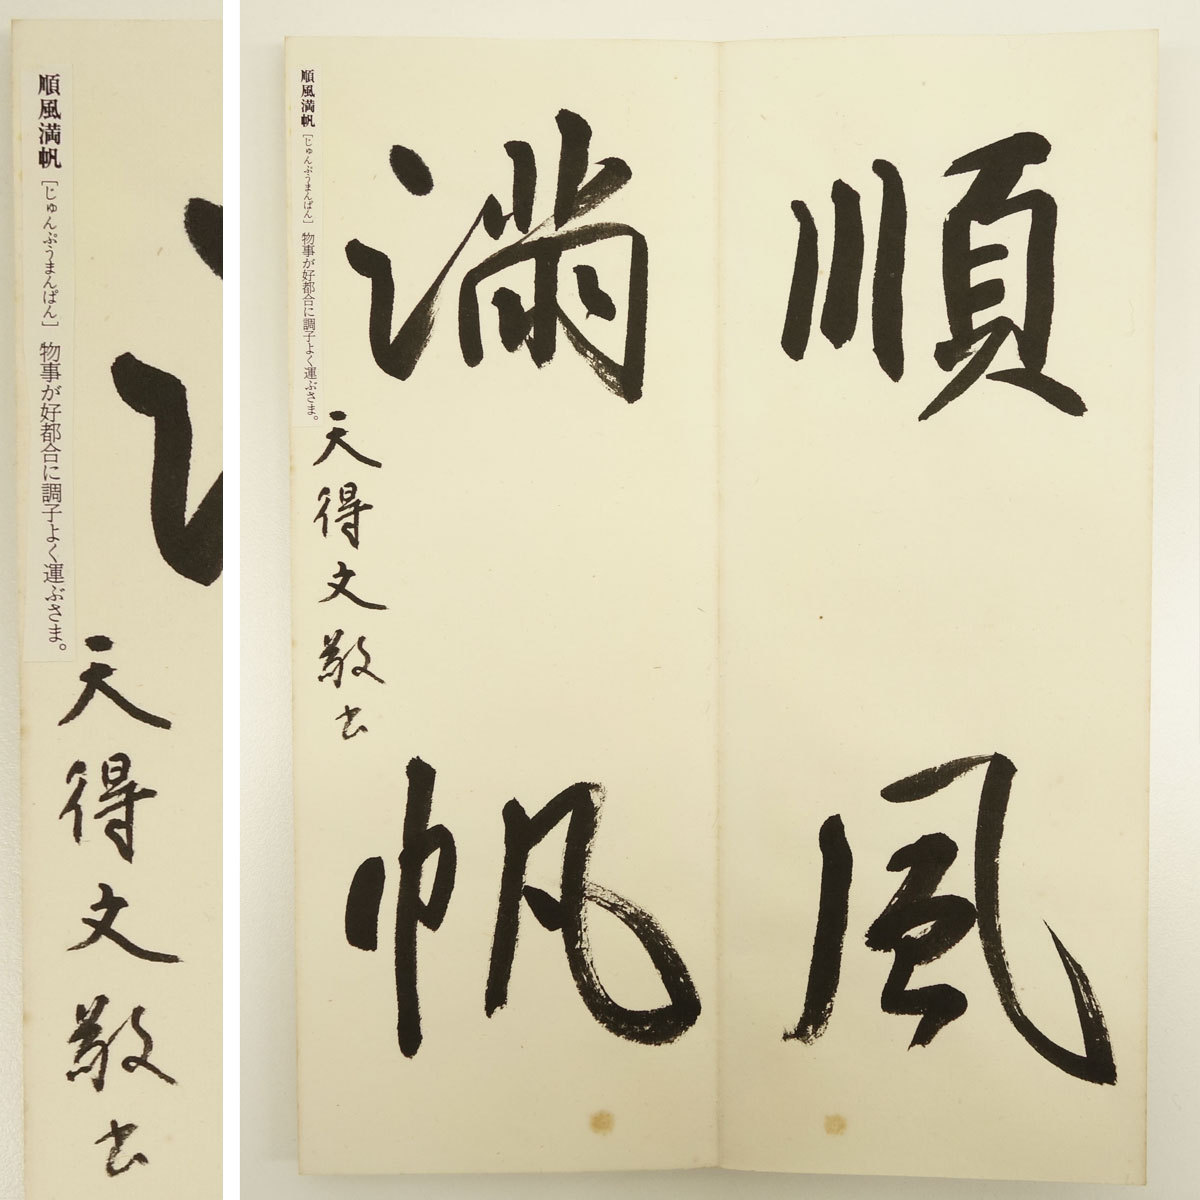 順風満帆［じゅんぷうまんぱん］ 物事が好都合に調子よく運ぶさま。
天得文敬書
順風
満帆
順風満帆［じゅんぷうまんぱん］ 物事が好都合に調子よく運ぶさま。
天得文敬書